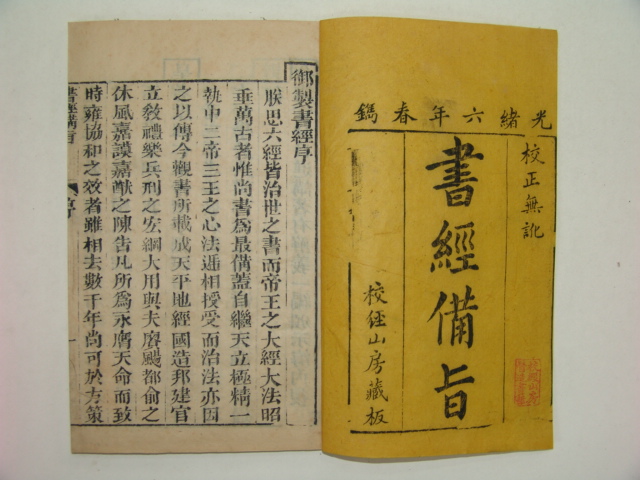 光緒六年春鐫
校正無訛
書經備旨
校經山房藏板
御製書經序
朕思六經皆治世之書而帝王之大經大法昭
垂萬古者惟尚書為最備蓋自繼天立極精一
執中二帝三王之心法遞相授受而治法亦因
之以傳今觀書所載成天平地經國造邦建官
立敎禮樂兵刑之宏綱大用與夫賡颺都俞之
休風嘉謨嘉猷之陳告凡所為永膺天命而致
時雍協和之效者雖相去數千年尚可於方策